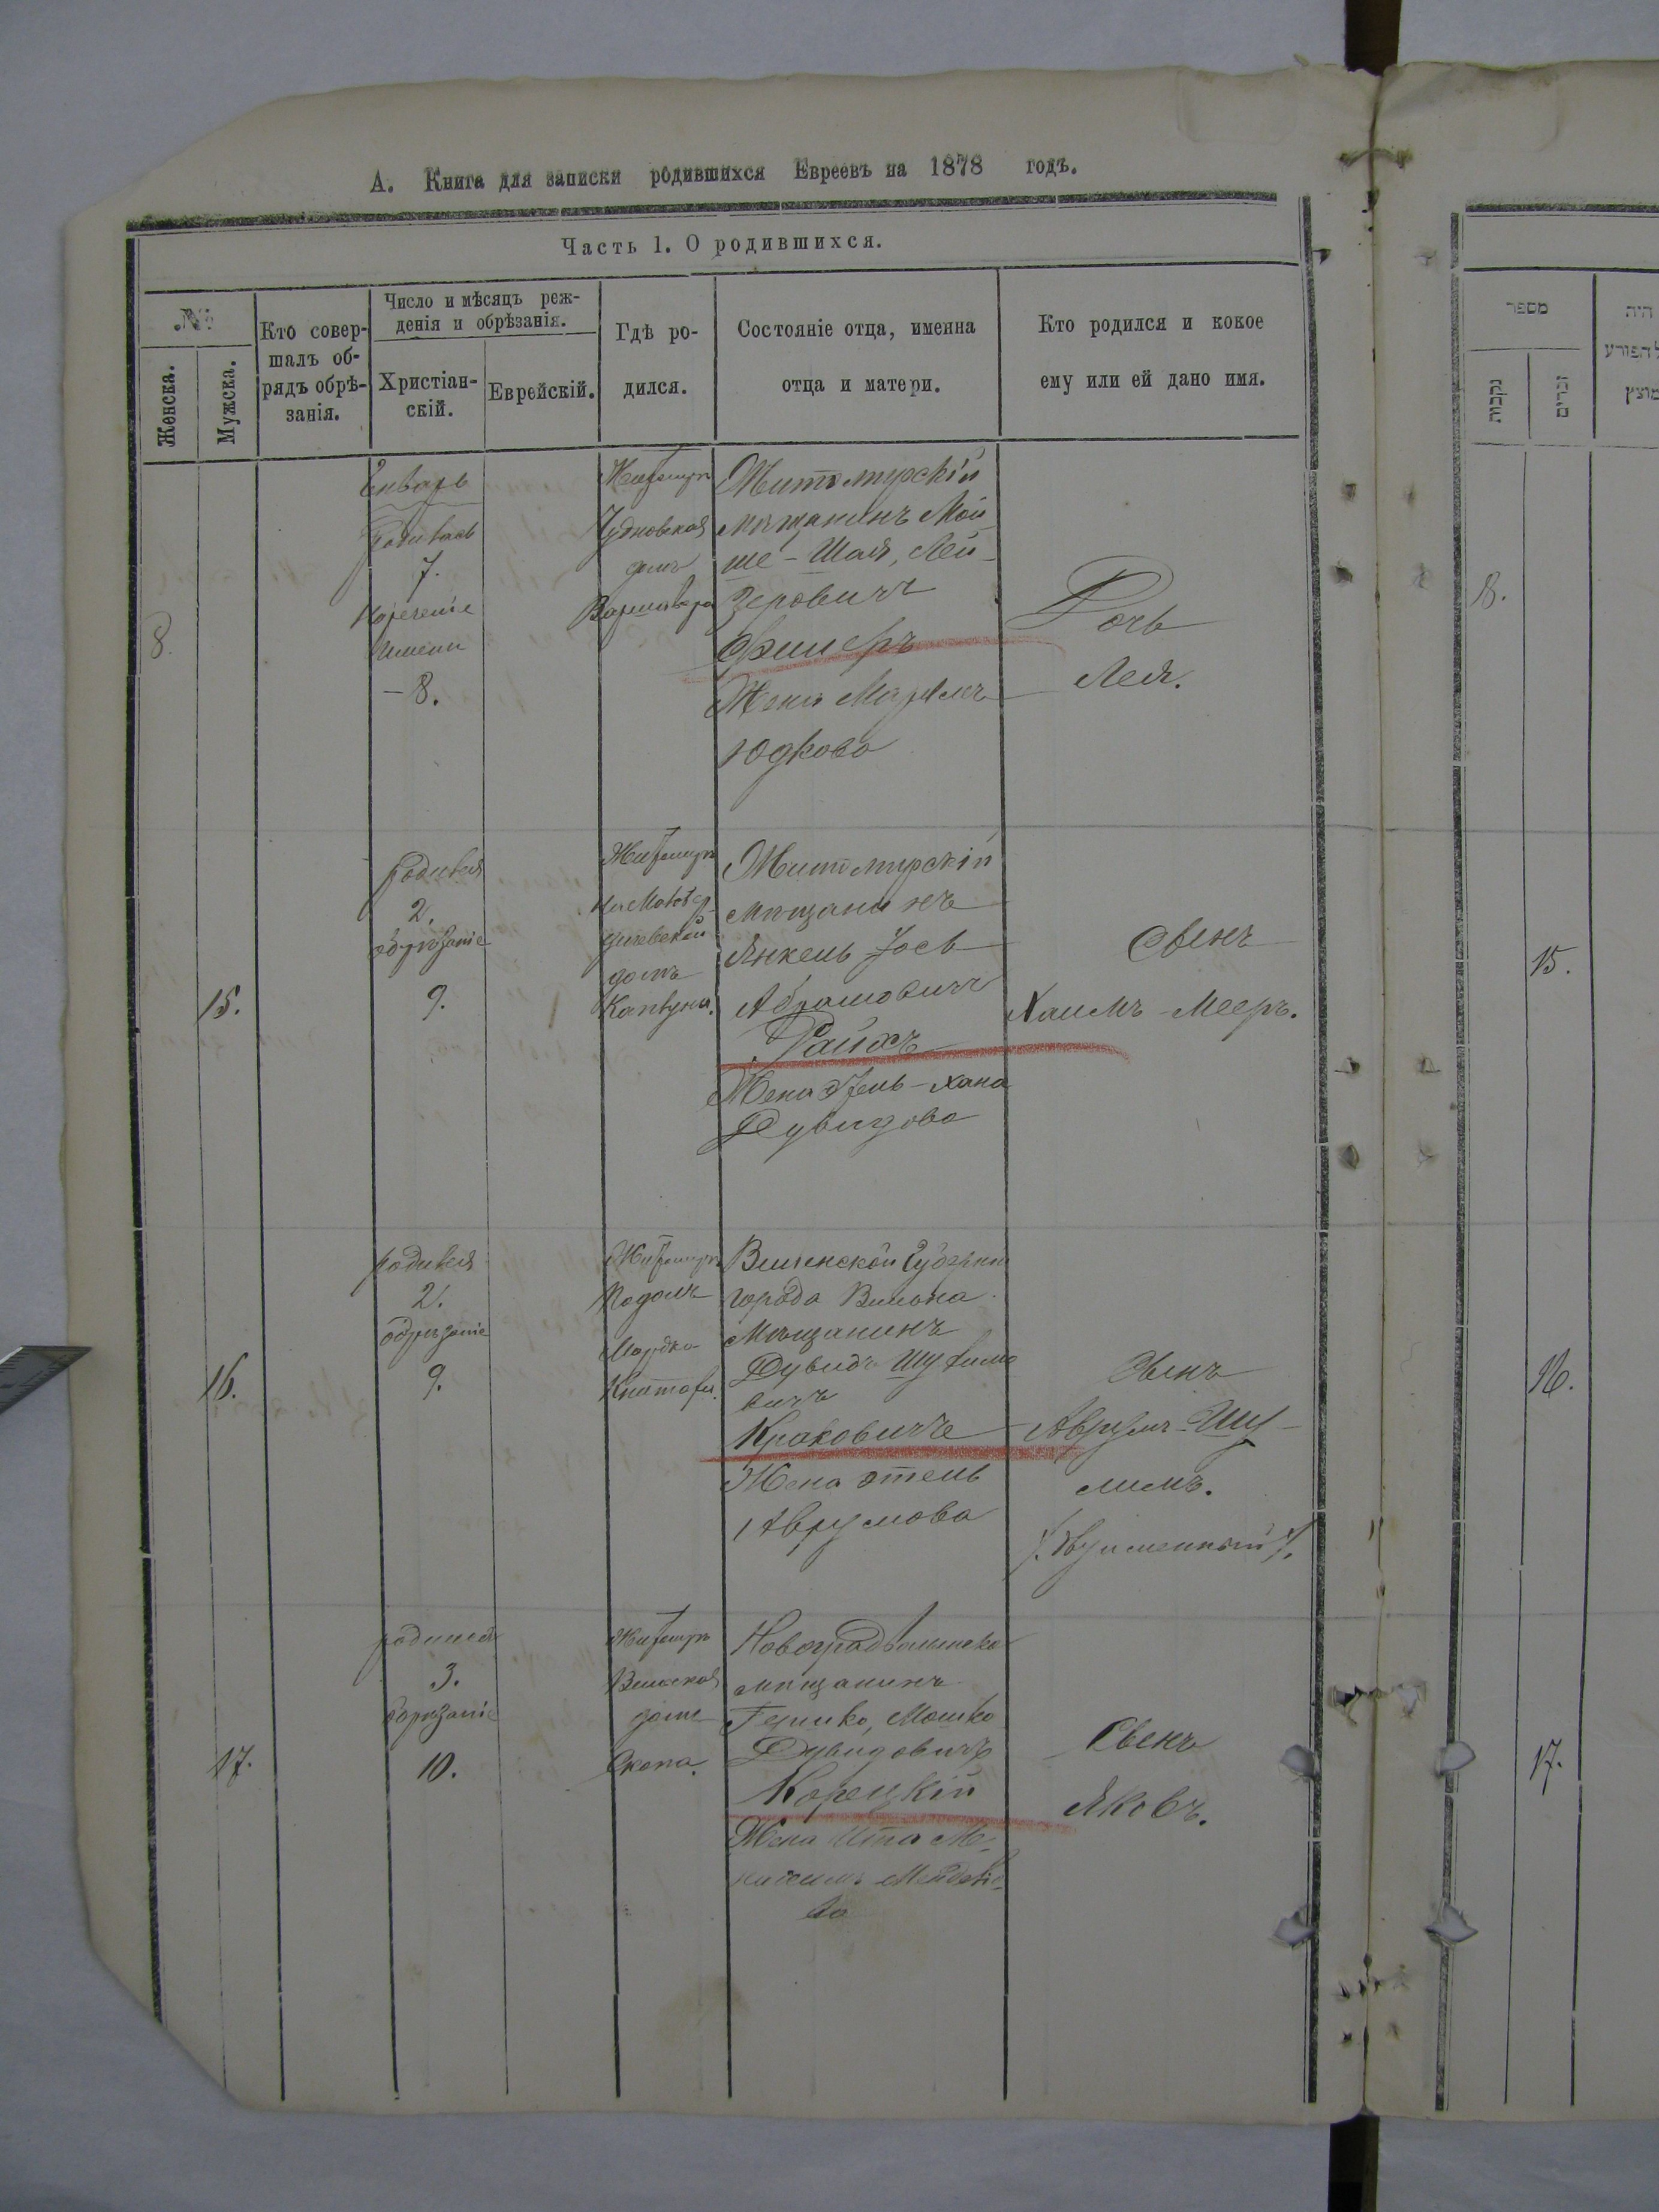 А. Книга для записки родившихся Евреевъ на 1878 годъ.
Часть 1. О родившихся.
№
Женска.
Мужска.
Кто совер-
шалъ об-
рядъ обрѣ-
занія.
Число и мѣсяцъ реж-
денія и обрѣзанія.
Христіан-
скій.
Еврейскій.
Гдѣ ро-
дился.
Состояніе отца, именна
отца и матери.
Кто родился и кокое
ему или ей дано имя.
8.
Январь
Родилась
7.
Наречение
имени
— 8.
Житомиръ
Чудновская
домъ
Житомирскій
мѣщанинъ Мой
ше-Шая, Лей-
зеровичъ
Жена
Юдкова
Дочь
Лея.
15.
родился
2.
обрѣзаніе
9.
Житомиръ
домъ
Житомирскій
мѣщанинъ
Янкель Іось
Абрамовичъ
Райхъ
Жена Этель-Хана
Дувидова
Сынъ
Хаимъ-Мееръ.
16.
родился
2.
обрѣзаніе
9.
Житомиръ
Подолъ
Мордко
Виленской Губерніи
города Вильна
Мѣщанинъ
Дувидъ
вичъ
Краковичъ
Жена Этель
Аврумова
Сынъ
Аврумъ-Шу-
лимъ.
/. двуименный /.
17.
родился
3.
обрѣзаніе
10.
Житомиръ
Вильская
домъ
Скопа.
Новоградволынско
мѣщанинъ
Гершко, Мошко
Дувидовичъ
Корецкій
Жена Ита
ва
Сынъ
Яковъ.
מספר
נקבות
זכרים
היה
מוצץ
8.
15.
16.
17.